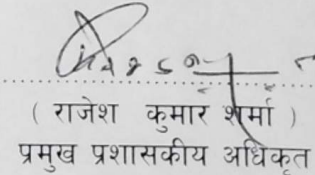 ( राजेश कुमार शर्मा )
प्रमुख प्रशासकीय अधिकृत